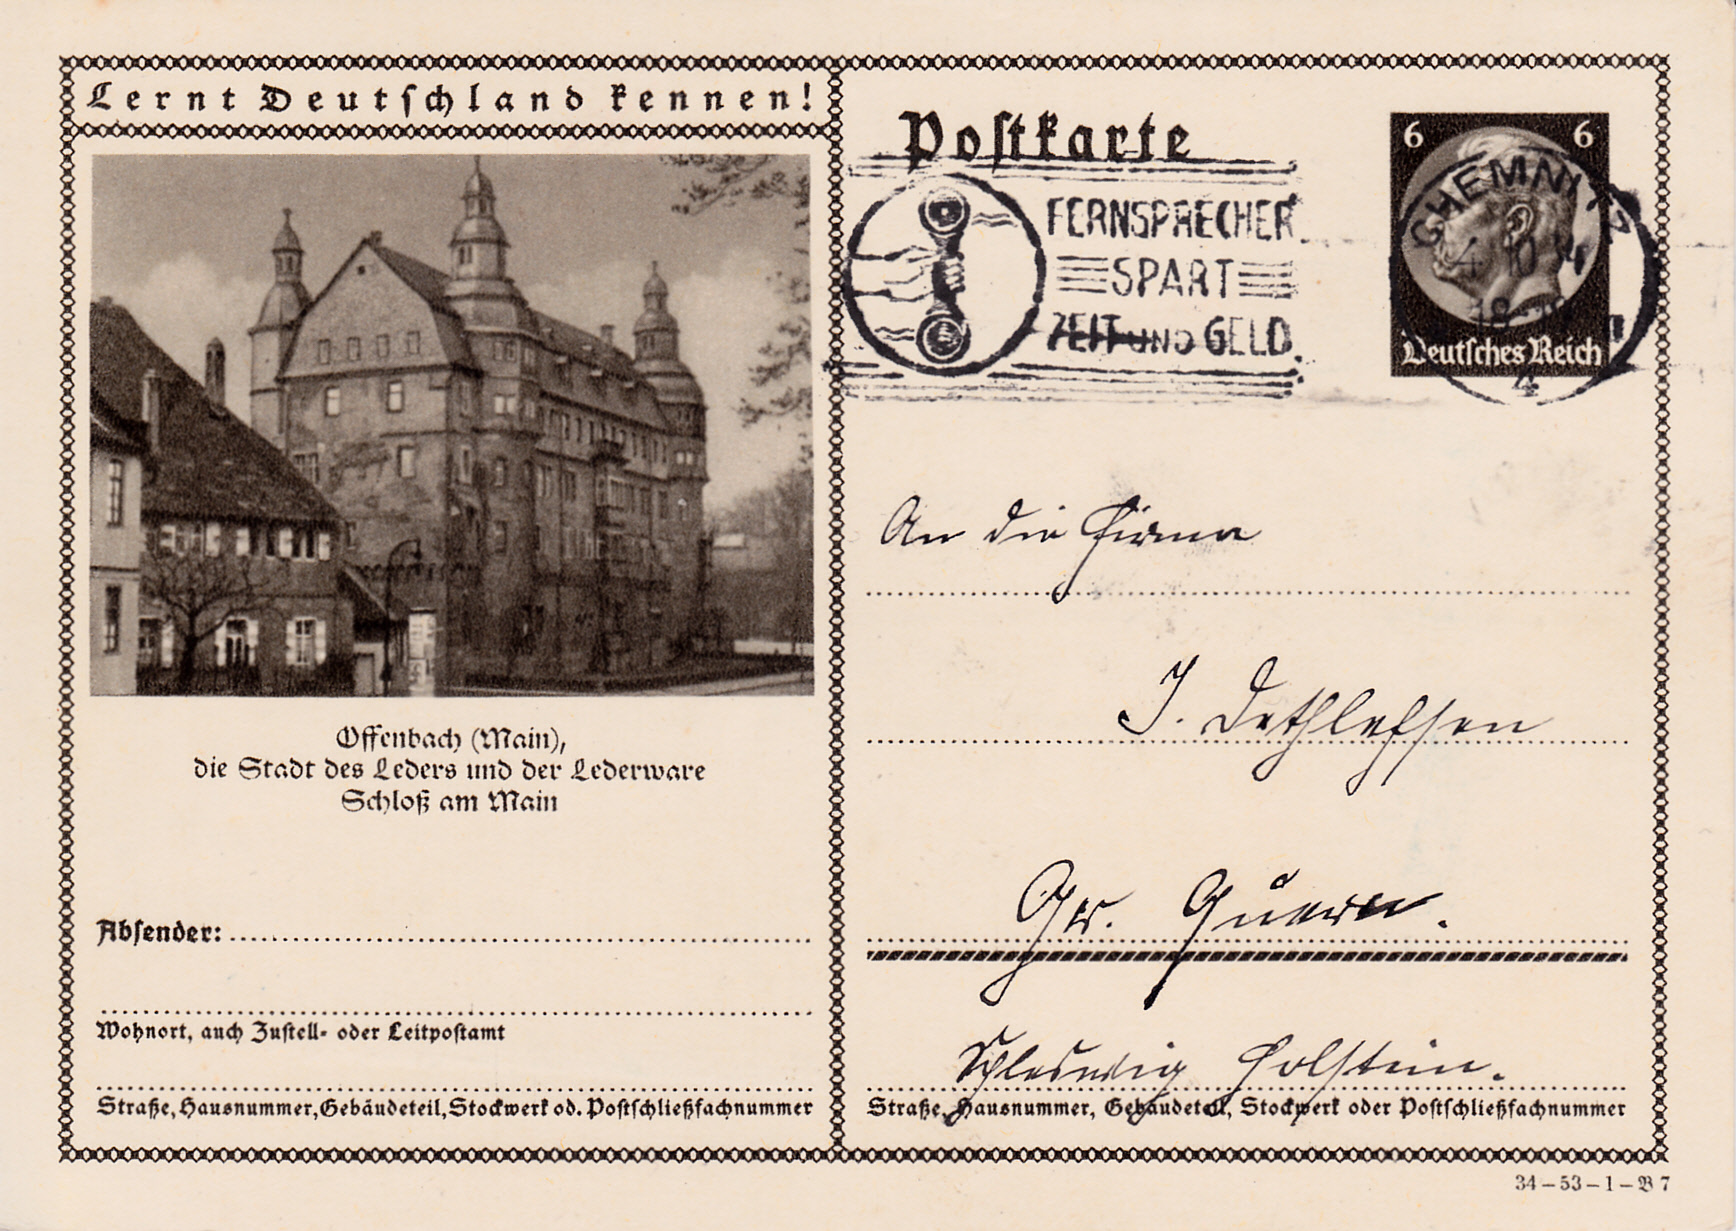 Lernt Deutschland kennen!
Offenbach (Main),
die Stadt des Leders und der Lederware
Schloß am Main
Absender:
Wohnort, auch Zustell- oder Leitpostamt
Straße, Hausnummer, Gebäudeteil, Stockwerk od. Postschließfachnummer
Postkarte
FERNSPRECHER
SPART
ZEIT UND GELD.
6 6
Deutsches Reich
CHEMNITZ
4
An die Firma
J. Dethlefsen
Gr. Quern.
Schleswig Holstein.
Straße, Hausnummer, Gebäudeteil, Stockwerk oder Postschließfachnummer
34–53–1–B 7